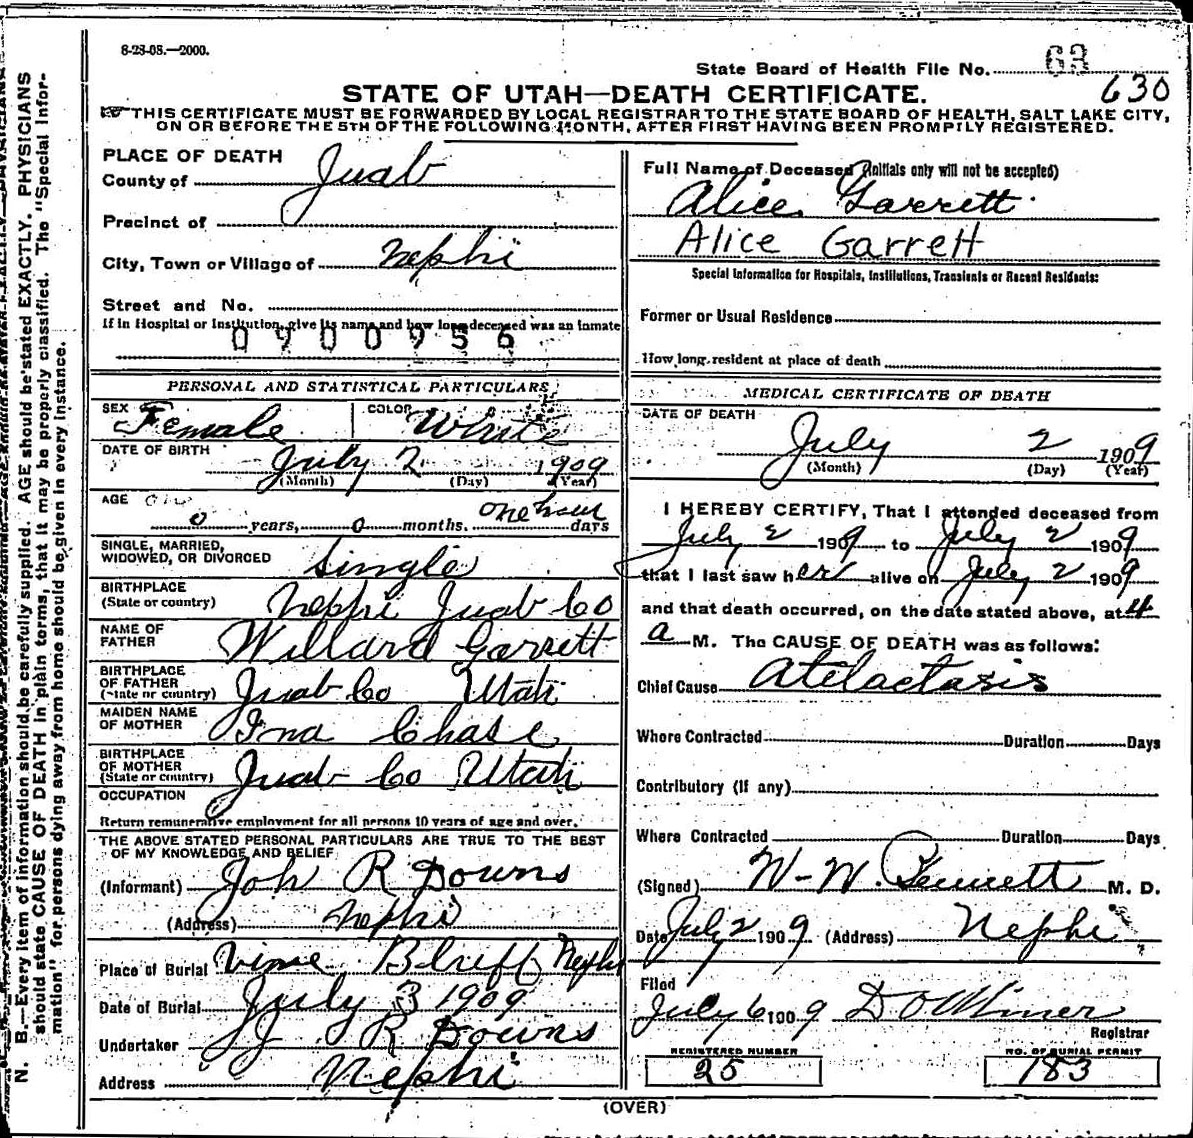 8-28-08.—2000.
State Board of Health File No. 63
630
STATE OF UTAH—DEATH CERTIFICATE.
THIS CERTIFICATE MUST BE FORWARDED BY LOCAL REGISTRAR TO THE STATE BOARD OF HEALTH, SALT LAKE CITY,
ON OR BEFORE THE 5TH OF THE FOLLOWING MONTH, AFTER FIRST HAVING BEEN PROMPTLY REGISTERED.
PLACE OF DEATH
County of Juab
Precinct of
City, Town or Village of Nephi
Street and No.
If in Hospital or Institution, give its name and how long deceased was an inmate
0900956
PERSONAL AND STATISTICAL PARTICULARS
SEX Female COLOR White
DATE OF BIRTH July 2 1909
(Month) (Day) (Year)
AGE 0 years, 0 months. one hour days
SINGLE, MARRIED,
WIDOWED, OR DIVORCED Single
BIRTHPLACE
(State or country) Nephi Juab Co
NAME OF
FATHER Willard Garrett
BIRTHPLACE
OF FATHER
(State or country) Juab Co Utah
MAIDEN NAME
OF MOTHER Ina Chase
BIRTHPLACE
OF MOTHER
(State or country) Juab Co Utah
OCCUPATION
Return remunerative employment for all persons 10 years of age and over.
THE ABOVE STATED PERSONAL PARTICULARS ARE TRUE TO THE BEST
OF MY KNOWLEDGE AND BELIEF
(Informant) Joh R Downs
(Address) Nephi
Place of Burial Vine Bluff Nephi
Date of Burial July 3 1909
Undertaker J R Downs
Address Nephi
Full Name of Deceased (Initials only will not be accepted)
Alice Garrett
Alice Garrett
Special Information for Hospitals, Institutions, Transients or Recent Residents:
Former or Usual Residence
How long resident at place of death
MEDICAL CERTIFICATE OF DEATH
DATE OF DEATH
July 2 1909
(Month) (Day) (Year)
I HEREBY CERTIFY, That I attended deceased from
July 2 1909 to July 2 1909
that I last saw her alive on July 2 1909
and that death occurred, on the date stated above, at 4
a M. The CAUSE OF DEATH was as follows:
Chief Cause Atelactasis
Where Contracted Duration Days
Contributory (if any)
Where Contracted Duration Days
(Signed) W-W. Bennett M. D.
Date July 2 1909 (Address) Nephi
Filed
July 6 1909 D O Miner
Registrar
REGISTERED NUMBER
25
NO. OF BURIAL PERMIT
183
(OVER)
N. B.—Every item of information should be carefully supplied. AGE should be stated EXACTLY. PHYSICIANS
should state CAUSE OF DEATH in plain terms, that it may be properly classified. The "Special Infor-
mation" for persons dying away from home should be given in every instance.